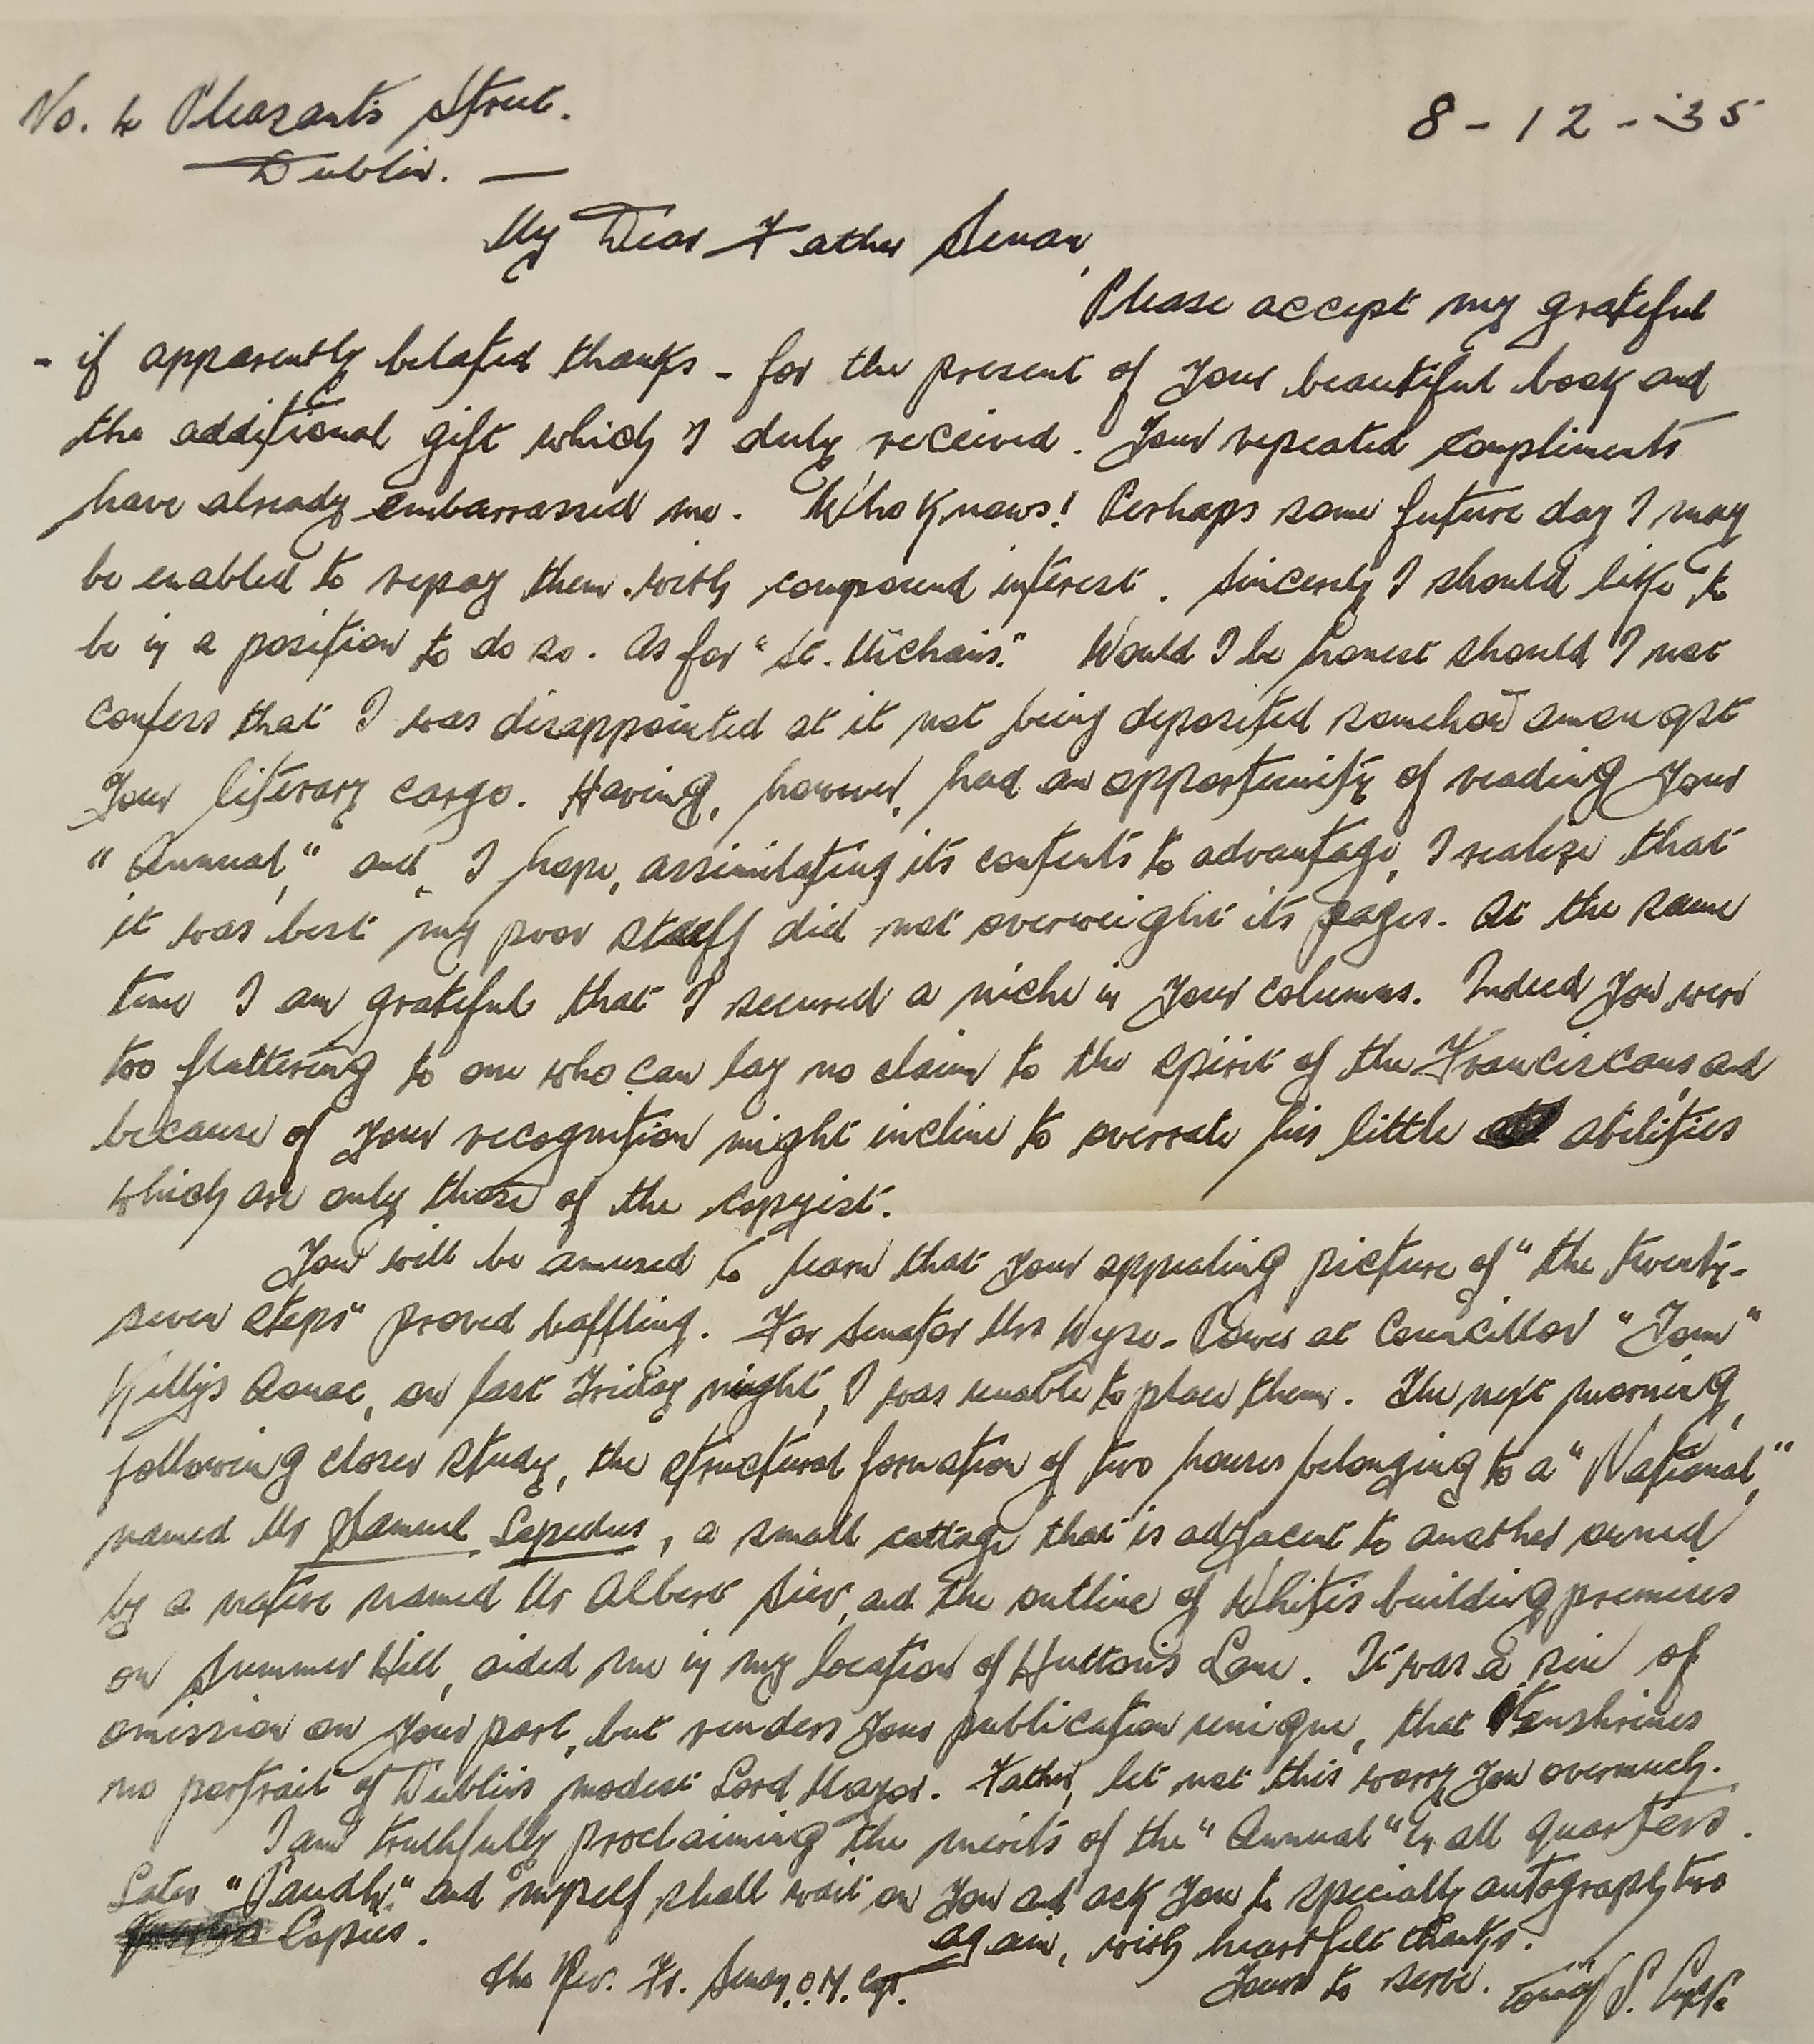 No. 4 Pleasants Street.
8-12-35
Dublin. —
My Dear Father Senan,
Please accept my grateful
- if apparently belated thanks - for the present of your beautiful book and
the additional gift which I duly received. Your repeated compliments
have already embarrassed me. Who knows! Perhaps some future day I may
be enabled to repay them with compound interest. Sincerely I should like to
be in a position to do so. As for "St. Michan's." Would I be honest should I not
confess that I was disappointed at it not being deposited somehow amongst
your literary cargo. Having, however, had an opportunity of reading your
"Annual," and, I hope, assimilating its contents to advantage, I realize that
it was best my poor stuff did not overweight its pages. At the same
time I am grateful that I secured a niche in your columns. Indeed you were
too flattering to one who can lay no claim to the spirit of the Franciscans, and
because of your recognition might incline to overrate his little abilities
which are only those of the copyist.
You will be amused to learn that your appealing picture of "the twenty-
seven steps" proved baffling. For Senator Mrs Wyse-Power at Councillor "Tom"
Kelly's Aonac, on last Friday night, I was unable to place them. The next morning,
following closer study, the structural formation of two houses belonging to a "National,"
named Mr Samuel Lapedus, a small cottage that is adjacent to another owned
by a native named Mr Albert Siev, and the outline of White's building premises
on Summer Hill, aided me in my location of Hutton's Lane. It was a sin of
omission on your part, but renders your publication unique, that it enshrines
no portrait of Dublin's modest Lord Mayor. Father, let not this worry you overmuch.
I am truthfully proclaiming the merits of the "Annual" in all quarters.
Later "Gandhi" and myself shall wait on you and ask you to specially autograph two
Copies.
again, with heartfelt thanks.
The Rev. Fr. Senan, O.M. Cap.
Yours to serve.